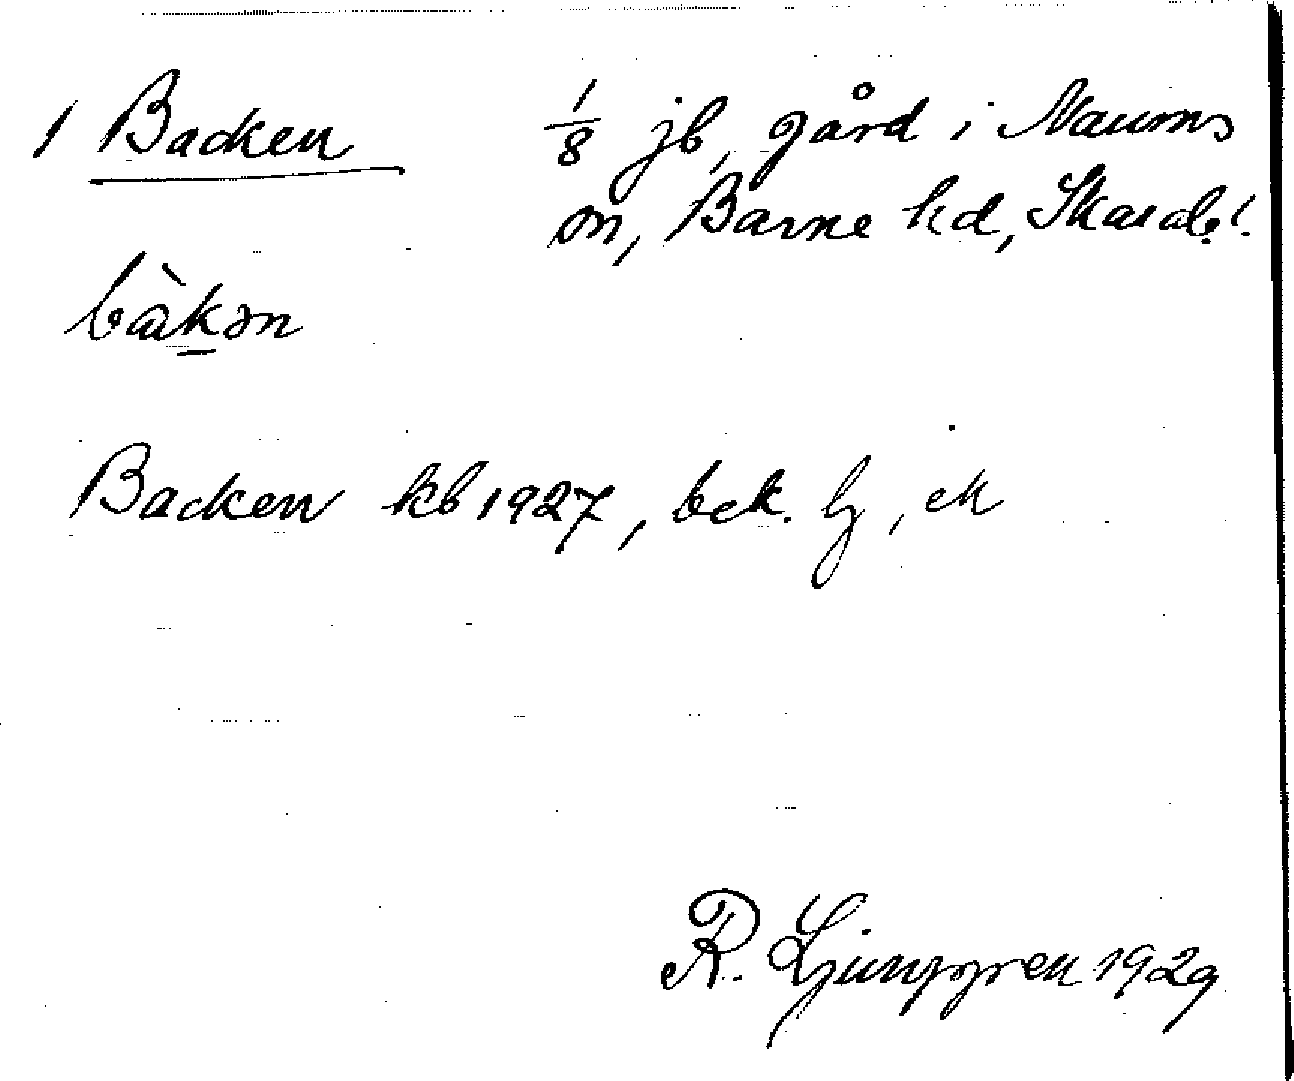 1 Backen 1/8 jb, gård i Naums
sn, Barne hd, Skarab. l.
bàkən
Backen kb 1927, bek. lj, ek
R. Ljunggren 1929